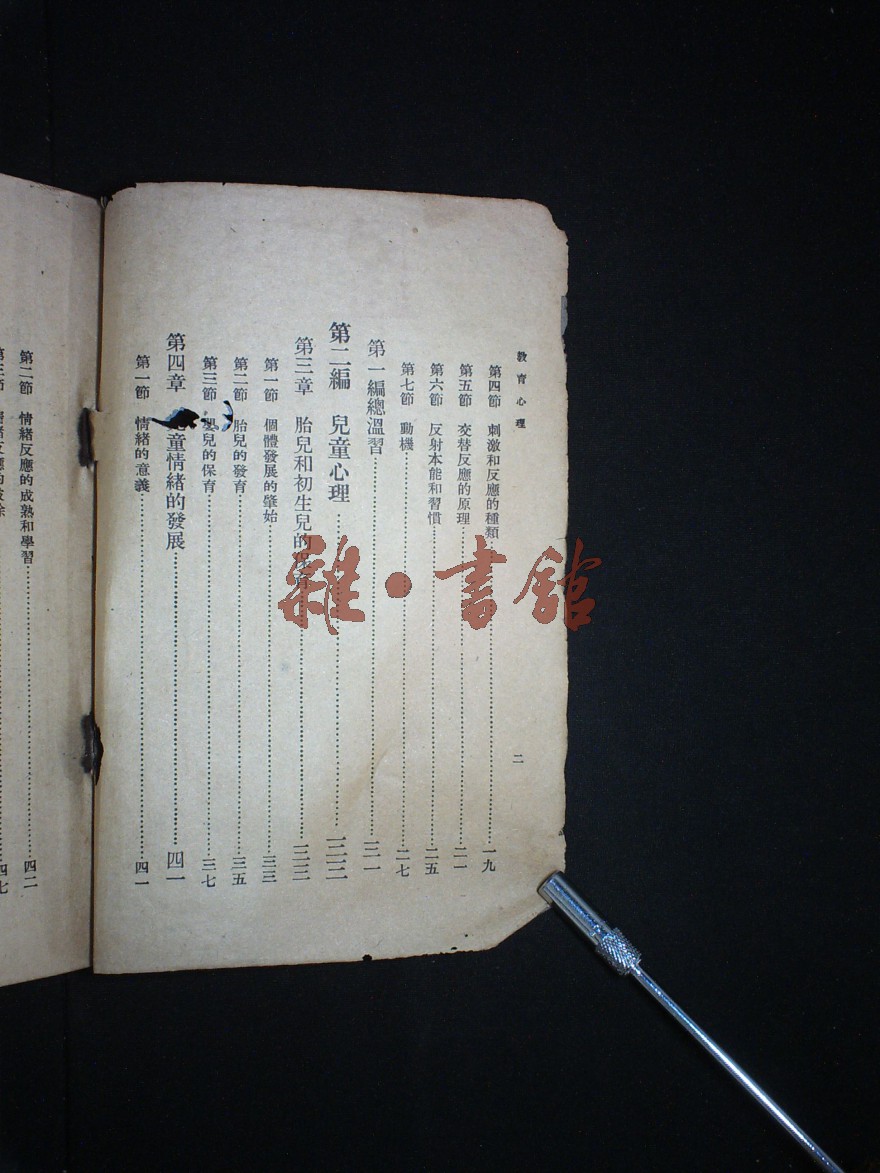 教育心理
二
第四節 刺激和反應的種類……一九
第五節 交替反應的原理……二一
第六節 反射本能和習慣……二五
第七節 動機……二七
第一編總溫習……三一
第二編 兒童心理……三三
第三章 胎兒和初生兒的保育……三三
第一節 個體發展的肇始……三三
第二節 胎兒的發育……三五
第三節 嬰兒的保育……三七
第四章 童情緒的發展……四一
第一節 情緒的意義……四一
第二節 情緒反應的成熟和學習……四二
雜·書館